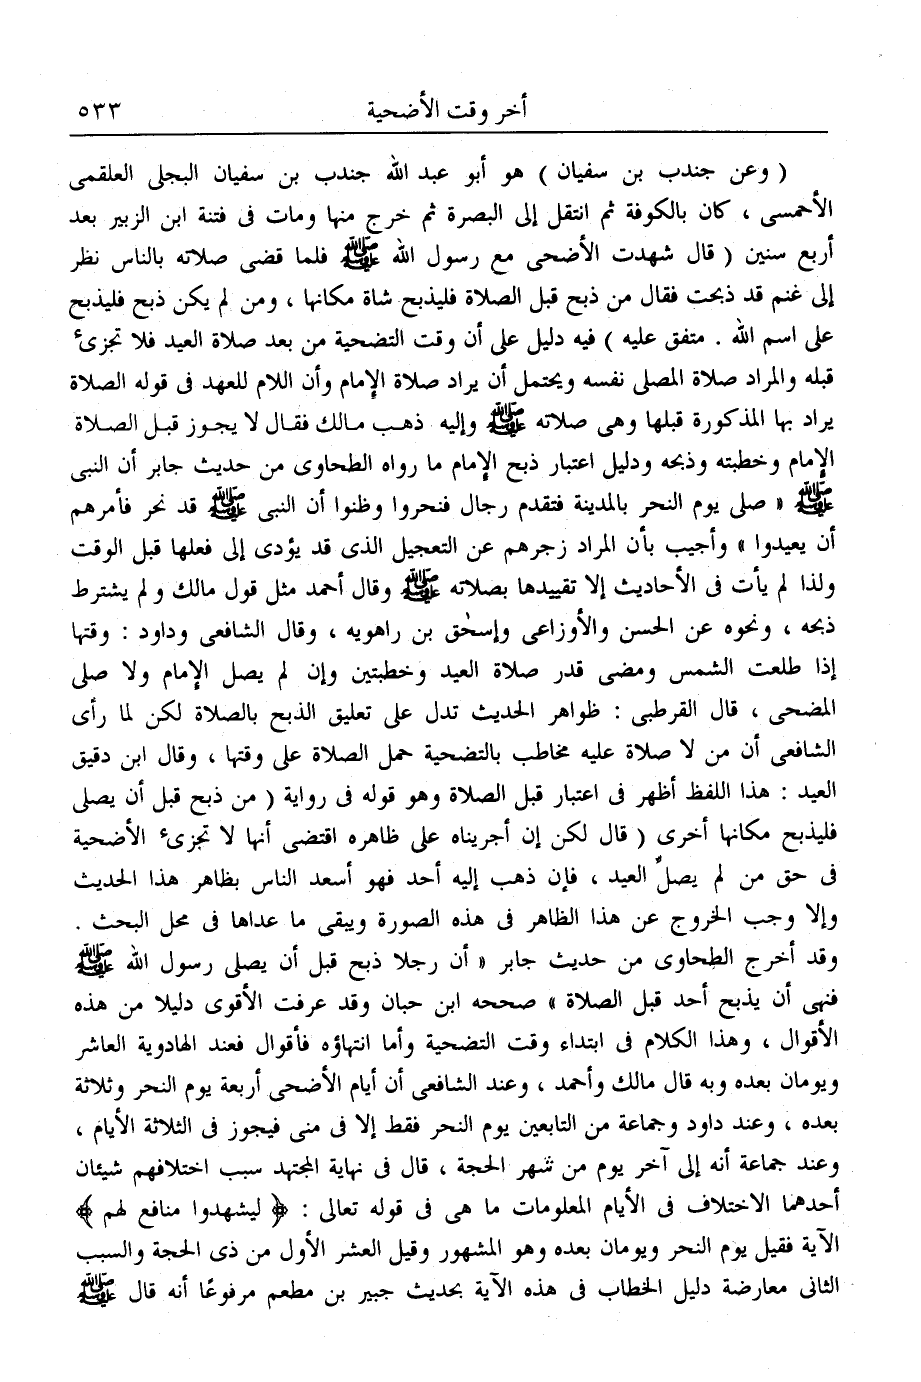 أخر وقت الأضحية ٥٣٣
( وعن جندب بن سفيان ) هو أبو عبد الله جندب بن سفيان البجلى العلقمى
الأحمسى ، كان بالكوفة ثم انتقل إلى البصرة ثم خرج منها ومات فى فتنة ابن الزبير بعد
أربع سنين ( قال شهدت الأضحى مع رسول الله ﷺ فلما قضى صلاته بالناس نظر
إلى غنم قد ذبحت فقال من ذبح قبل الصلاة فليذبح شاة مكانها ، ومن لم يكن ذبح فليذبح
على اسم الله . متفق عليه ) فيه دليل على أن وقت التضحية من بعد صلاة العيد فلا تجزىء
قبله والمراد صلاة المصلى نفسه ويحتمل أن يراد صلاة الإمام وأن اللام للعهد فى قوله الصلاة
يراد بها المذكورة قبلها وهى صلاته ﷺ وإليه ذهب مالك فقال لا يجوز قبل الصلاة
الإمام وخطبته وذبحه ودليل اعتبار ذبح الإمام ما رواه الطحاوى من حديث جابر أن النبى
ﷺ « صلى يوم النحر بالمدينة فتقدم رجال فنحروا وظنوا أن النبى ﷺ قد نحر فأمرهم
أن يعيدوا » وأجيب بأن المراد زجرهم عن التعجيل الذى قد يؤدى إلى فعلها قبل الوقت
ولذا لم يأت فى الأحاديث إلا تقييدها بصلاته ﷺ وقال أحمد مثل قول مالك ولم يشترط
ذبحه ، ونحوه عن الحسن والأوزاعى وإسحٰق بن راهويه ، وقال الشافعى وداود : وقتها
إذا طلعت الشمس ومضى قدر صلاة العيد وخطبتين وإن لم يصل الإمام ولا صلى
المضحى ، قال القرطبى : ظواهر الحديث تدل على تعليق الذبح بالصلاة لكن لما رأى
الشافعى أن من لا صلاة عليه مخاطب بالتضحية حمل الصلاة على وقتها ، وقال ابن دقيق
العيد : هذا اللفظ أظهر فى اعتبار قبل الصلاة وهو قوله فى رواية ( من ذبح قبل أن يصلى
فليذبح مكانها أخرى ( قال لكن إن أجريناه على ظاهره اقتضى أنها لا تجزىء الأضحية
فى حق من لم يصلٌ العيد ، فإن ذهب إليه أحد فهو أسعد الناس بظاهر هذا الحديث
وإلا وجب الخروج عن هذا الظاهر فى هذه الصورة ويبقى ما عداها فى محل البحث .
وقد أخرج الطحاوى من حديث جابر « أن رجلا ذبح قبل أن يصلى رسول الله ﷺ
فنهى أن يذبح أحد قبل الصلاة » صححه ابن حبان وقد عرفت الأقوى دليلا من هذه
الأقوال ، وهذا الكلام فى ابتداء وقت التضحية وأما انتهاؤه فأقوال فعند الهادوية العاشر
ويومان بعده وبه قال مالك وأحمد ، وعند الشافعى أن أيام الأضحى أربعة يوم النحر وثلاثة
بعده ، وعند داود وجماعة من التابعين يوم النحر فقط إلا فى منى فيجوز فى الثلاثة الأيام ،
وعند جماعة أنه إلى آخر يوم من شهر الحجة ، قال فى نهاية المجتهد سبب اختلافهم شيئان
أحدهما الاختلاف فى الأيام المعلومات ما هى فى قوله تعالى : ﴿ ليشهدوا منافع لهم ﴾
الآية فقيل يوم النحر ويومان بعده وهو المشهور وقيل العشر الأول من ذى الحجة والسبب
الثانى معارضة دليل الخطاب فى هذه الآية بحديث جبير بن مطعم مرفوعًا أنه قال ﷺ